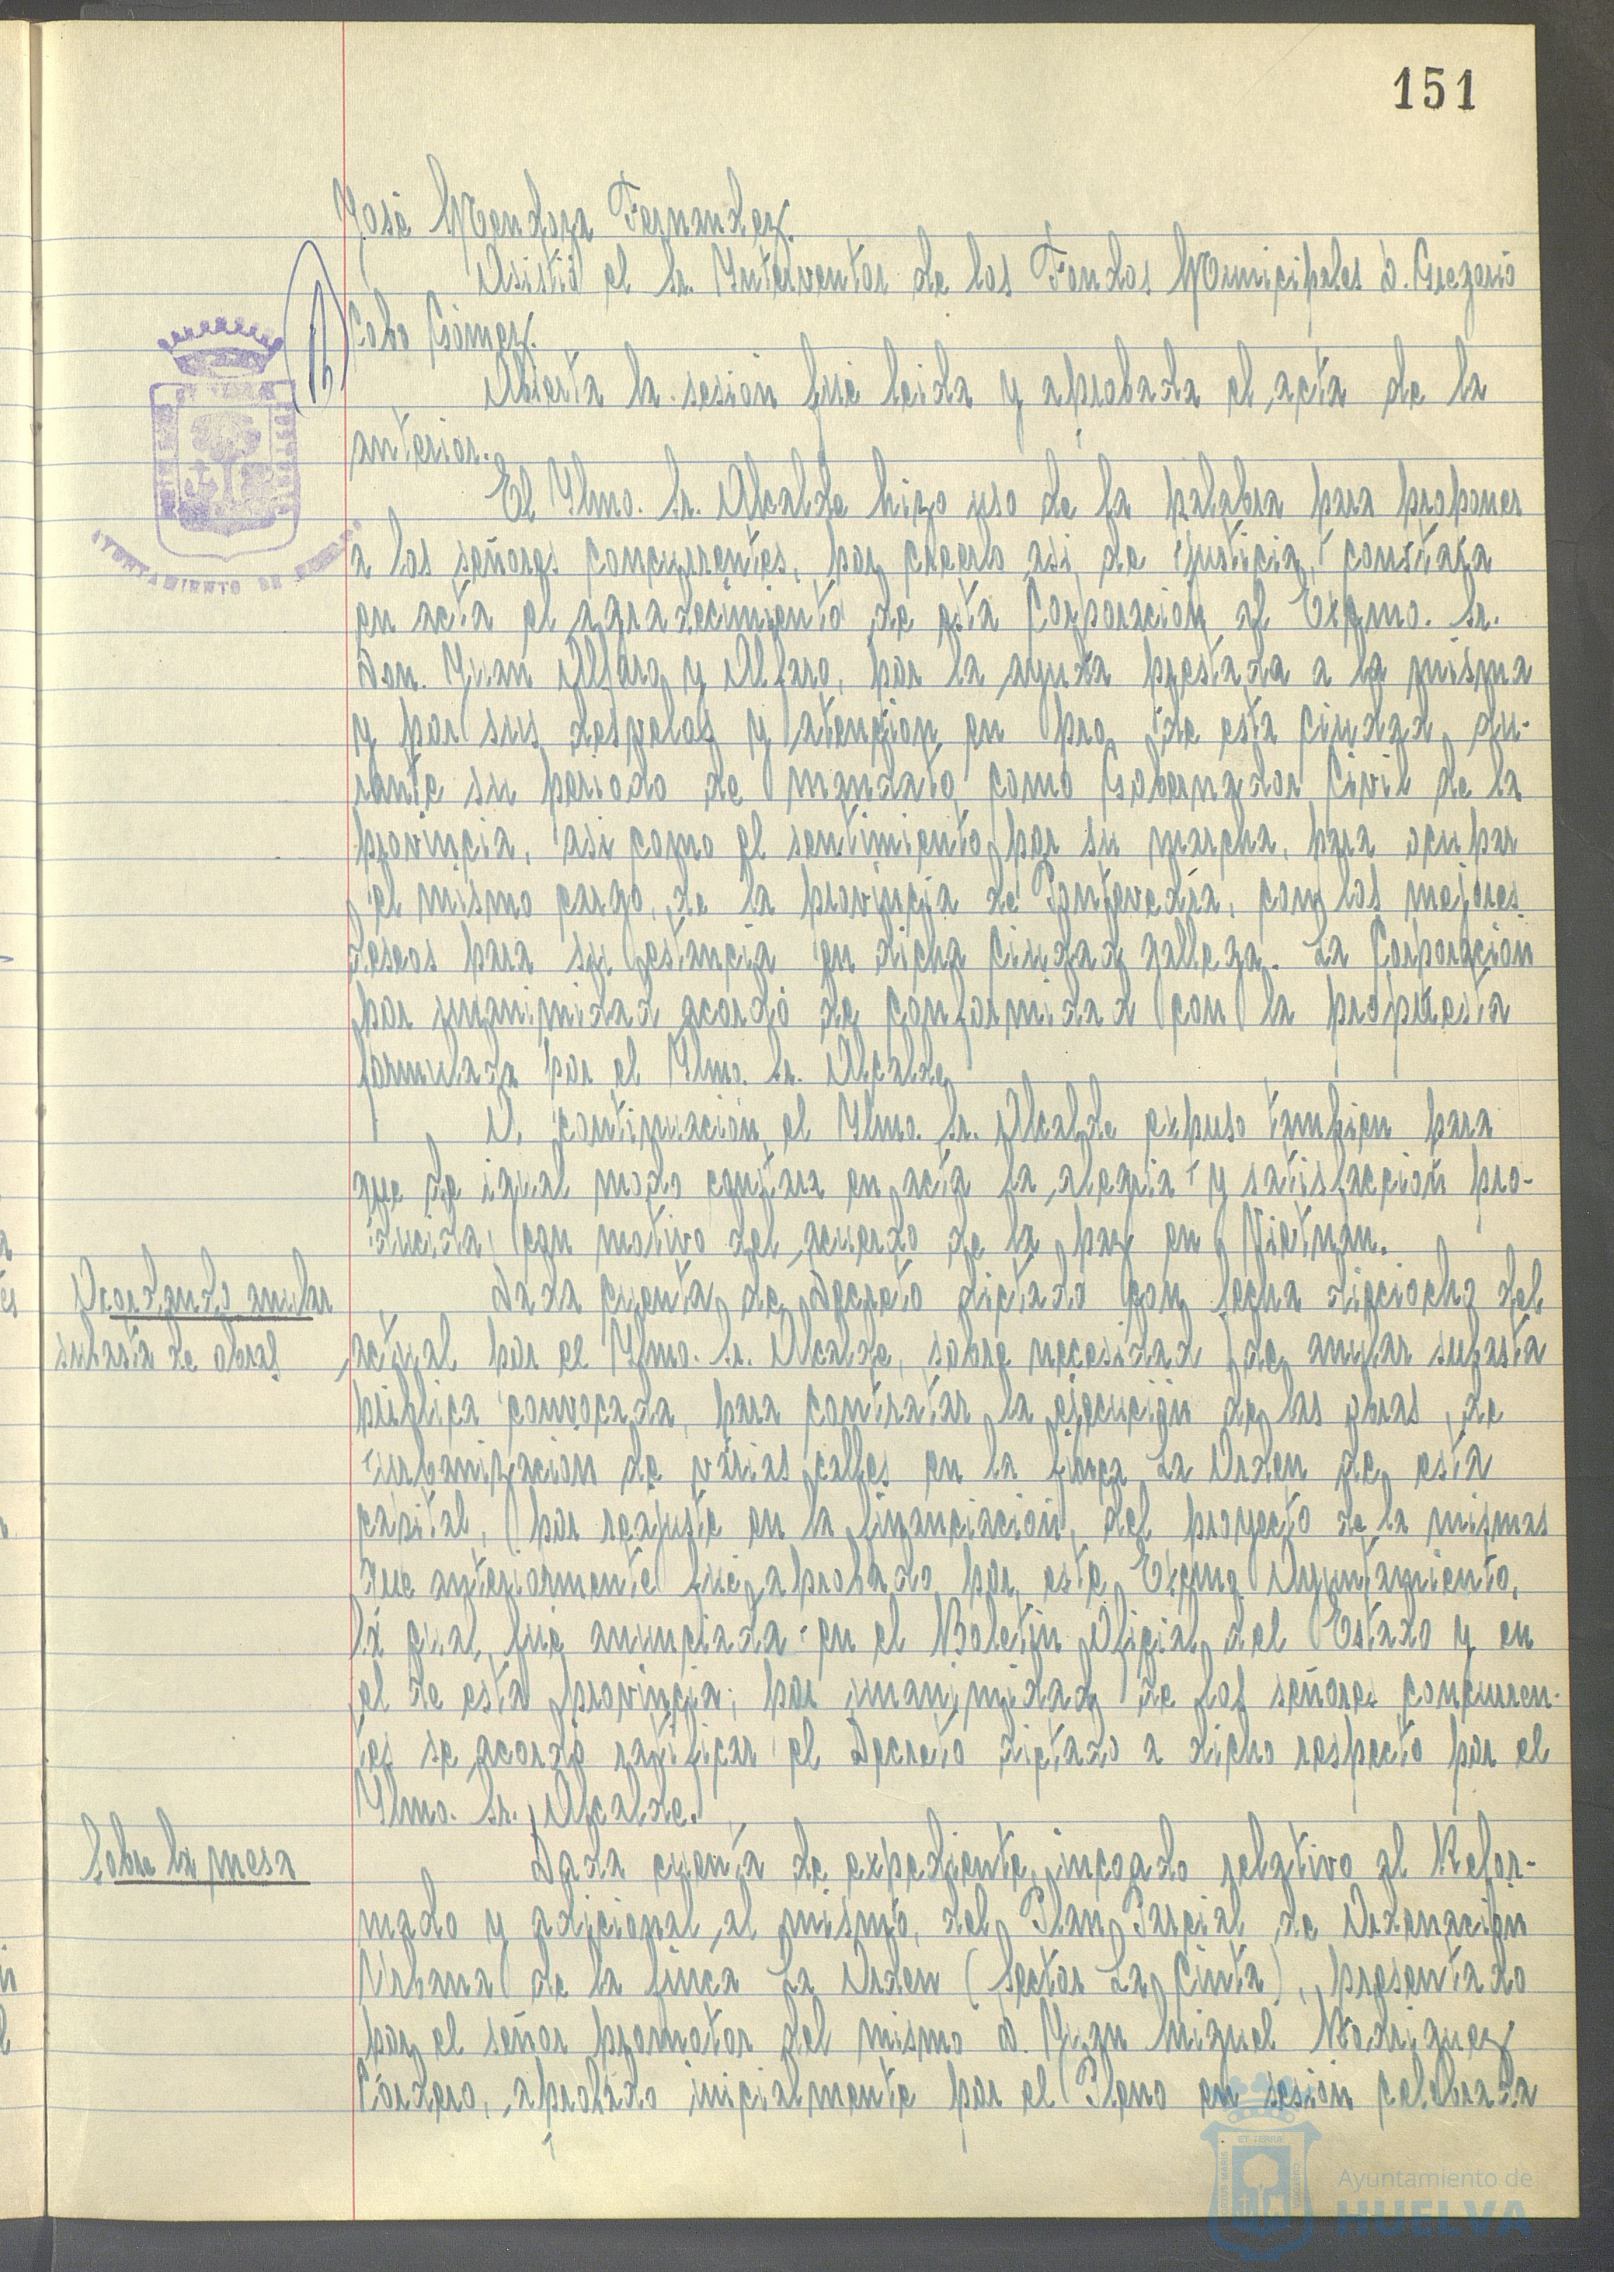 151
José Mendoza Fernandez.
Asistió el Sr. Interventor de los Fondos Municipales D. Gregorio
Cobo Gómez.
Abierta la sesion fué leida y aprobada el acta de la
anterior.
El Ylmo. Sr. Alcalde hizo uso de la palabra para proponer
a los señores concurrentes, por creerlo asi de justicia, constara
en acta el agradecimiento de esta Corporacion al Excmo. Sr.
Don. Juan Alfaro y Alfaro, por la ayuda prestada a la misma
y por sus desvelos y atencion en pro de esta Ciudad, du-
rante su periodo de mandato como Gobernador Civil de la
provincia, asi como el sentimiento por su marcha, para ocupar
el mismo cargo, de la provincia de Pontevedra, con los mejores
deseos para su estancia en dicha Ciudad gallega. La Corporacion
por unanimidad acordó de conformidad con la propuesta
formulada por el Ylmo. Sr. Alcalde
A continuación, el Ylmo. Sr. Alcalde expuso tambien para
que de igual modo constara en acta la alegria y satisfaccion pro-
ducida, con motivo del acuerdo de la paz en Vietnan.
Acordando anular
subasta de obras
Dada cuenta de Decreto dictado con fecha dieciocho del
actual por el Ylmo. Sr. Alcalde, sobre necesidad de anular subasta
pública convocada, para contratar la ejecución de las obras de
urbanizacion de varias calles en la finca La Orden de esta
capital, por reajuste en la financiacion, del proyecto de la mismas
que anteriormente fue aprobado por este Excmo Ayuntamiento,
la cual fué anunciada en el Boletin Oficial del Estado y en
el de esta provincia; por unanimidad de los señores concurren-
tes se acordó ratificar el Decreto dictado a dicho respecto por el
Ylmo. Sr. Alcalde.
Sobre la mesa
Dada cuenta de expediente incoado relativo al Refor-
mado y adicional al mismo, del Plan Parcial de Ordenacion
Urbana de la finca La Orden (Sector La Cinta), presentado
por el señor promotor del mismo D. Juan Miguel Rodriguez
Cordero, aprobado inicialmente por el Pleno en sesion celebrada
AYUNTAMIENTO DE HUELVA
Ayuntamiento de
HUELVA